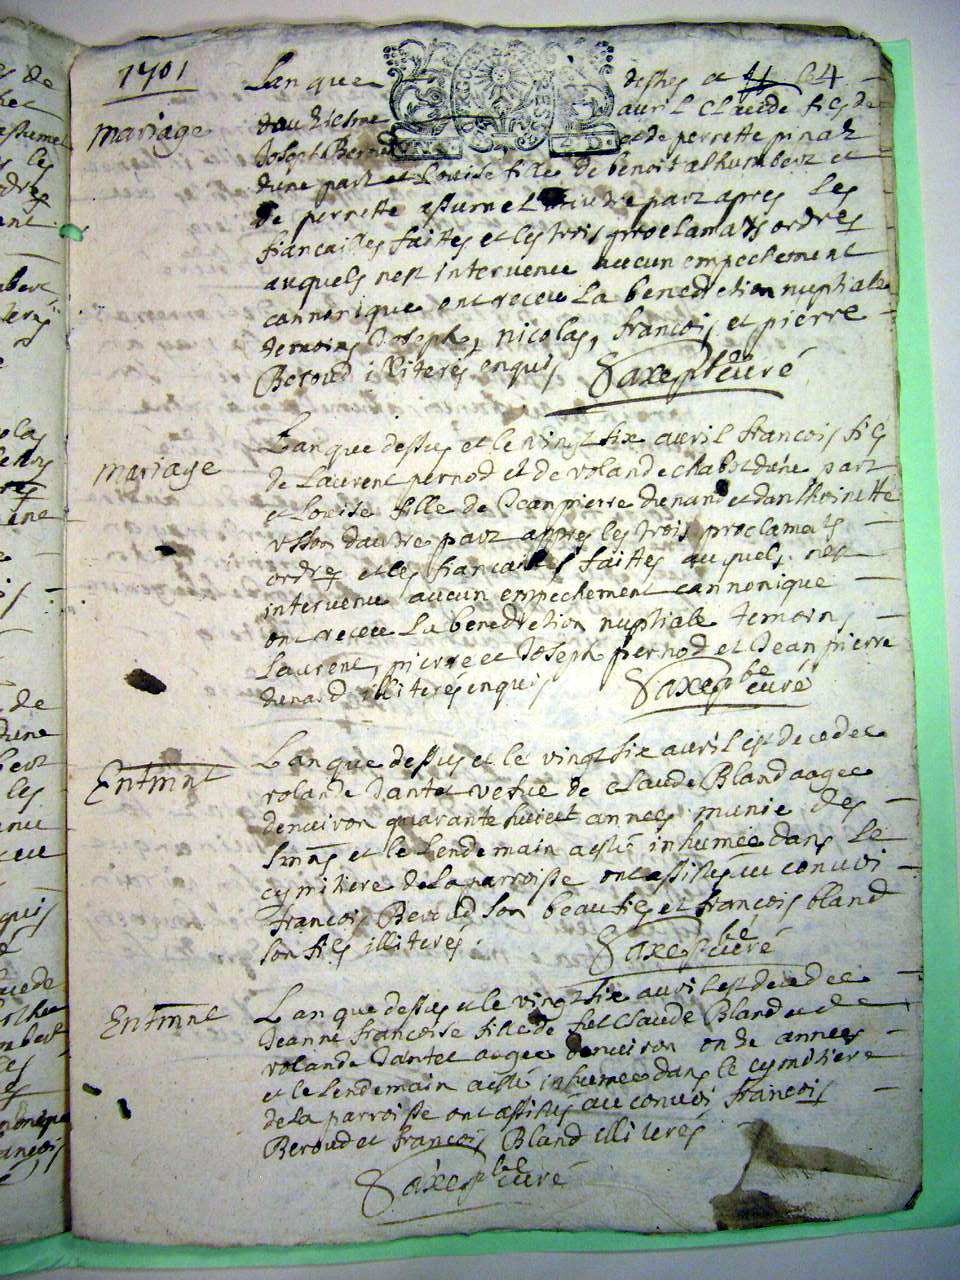 1701
Mariage
Lan que dessus et le 4
dou ziesme avril Claude fils de
Joseph Beroud et de perrette pinaz
dune part et Louise fille de benoit alhumbert et
de perrette assumel dautre part apres les
fiancailles faites et les trois proclamats ordres
auquels nest intervenu aucun empechement
cannonique ont receu La benediction nuptiale
temoins Joseph, nicolas, francois et pierre
Beroud illiterés enquis Saxe pbre curé
Mariage
Lan que dessus et le vingt six avril francois fils
de Laurent pernod et de rolande chabot dune part
et Louise fille de Jean pierre dunand et danthoinette
usson dautre part apres les trois proclamats
ordres et les fiancailles faites auquels nest
intervenu aucun empechement cannonique
ont receu La benediction nuptiale temoins
Laurent, pierre et Joseph pernod et Jean pierre
dunand illiterés enquis Saxe pbre curé
Entmnt
Lan que dessus et le vingt six avril est decedee
rolande dantet vefue de Claude Bland aagee
denuiron quarante huict annees munie des
Smns et le Lendemain a esté inhumée dans Le
cymitiere de La parroisse ont assistés au convoi
francois Beroud son beau fils et francois bland
son fils illiterés. Saxe pbre curé
Entmnt
Lan que dessus et le vingt six avril est decedee
Jeanne francoise fille de fut Claude Bland et de
rolande dantet aagee denuiron onze annees
et le Lendemain a esté inhumee dans le cymitiere
de La parroisse ont assistés au convoi francois
Beroud et francois Bland illiterés
Saxe pbre curé